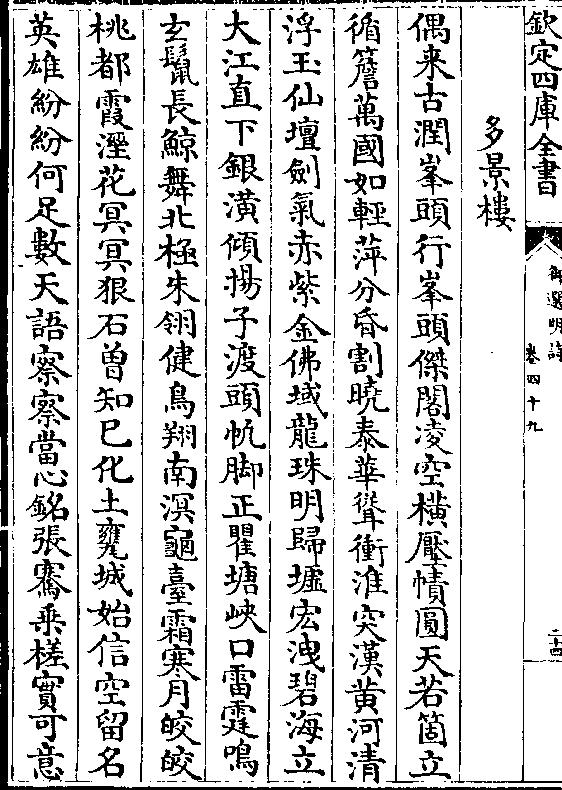 欽定四庫全書
御選明詩
卷四十九
二十四
多景樓
偶來古潤峯頭行峯頭傑閣凌空橫壓幘圓天若箇立
循簷萬國如輕萍分昏割曉泰華聳衝淮突漢黃河清
浮玉仙壇劍氣赤紫金佛域龍珠明歸墟宏洩碧海立
大江直下銀潢傾揚子渡頭帆脚正瞿塘峽口雷霆鳴
玄鬛長鯨舞北極朱翎健鳥翔南溟龜臺霜寒月皎皎
桃都霞溼花冥冥狠石曾知已化土甕城始信空留名
英雄紛紛何足數天語察察當心銘張騫乗槎實可意